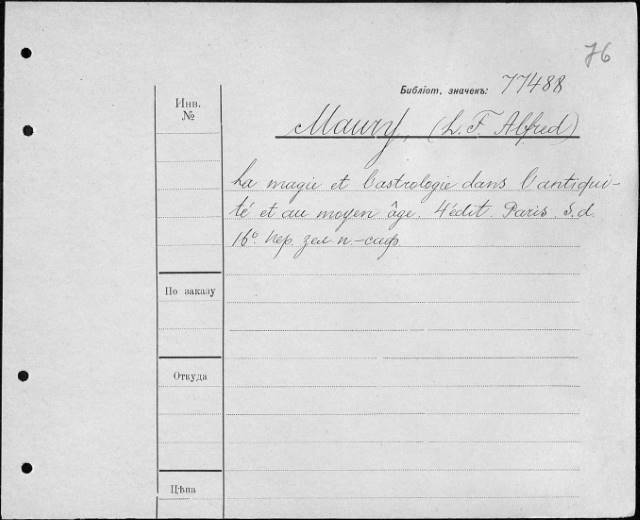 76
Библіот. значекъ: 77488
Инв.
№
Maury, (L. F. Alfred)
La magie et l'astrologie dans l'antiqui-
té et au moyen âge. 4 édit. Paris. S. d.
16° пер. зел п.-саф
По заказу
Откуда
Цѣна